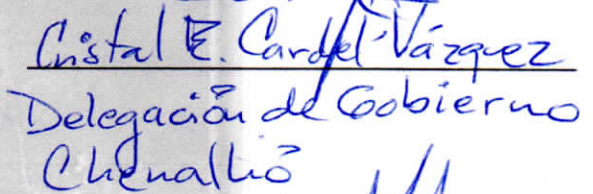 Cristal E. Cardel Vázquez
Delegación de Gobierno
Chenalhó